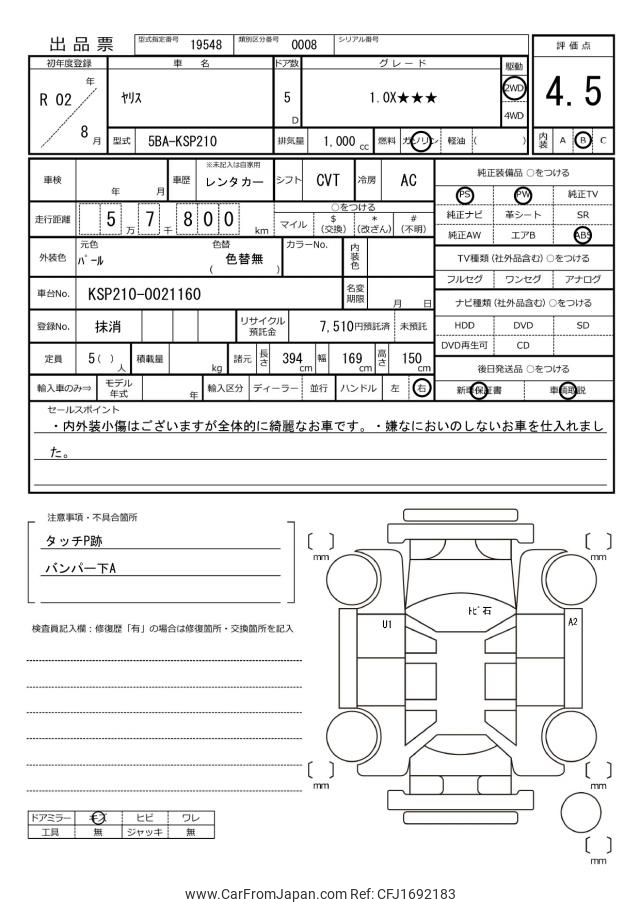 出品票 型式指定番号 19548 類別区分番号 0008 シリアル番号
評価点
4.5
内装 A B C
初年度登録 車名 ドア数 グレード 駆動
R 02 年 8 月 ヤリス 5 D 1.0X★★★ 2WD 4WD
型式 5BA-KSP210 排気量 1,000 cc 燃料 ガソリン 軽油 ( )
車検 年 月 車歴 ※未記入は自家用 レンタカー シフト CVT 冷房 AC
走行距離 5 万 7 千 8 0 0 km
○をつける
マイル $(交換) *(改ざん) #(不明)
外装色 元色 パール 色替 ( 色替無 ) カラーNo. 内装色
車台No. KSP210-0021160 名変期限 月 日
登録No. 抹消 リサイクル預託金 7,510円預託済 未預託
定員 5( )人 積載量 kg 諸元 長さ 394 cm 幅 169 cm 高さ 150 cm
輸入車のみ⇒ モデル年式 年 輸入区分 ディーラー 並行 ハンドル 左 右
純正装備品 ○をつける
PS PW 純正TV
純正ナビ 革シート SR
純正AW エアB ABS
TV種類(社外品含む) ○をつける
フルセグ ワンセグ アナログ
ナビ種類(社外品含む) ○をつける
HDD DVD SD
DVD再生可 CD
後日発送品 ○をつける
新車保証書 車輌取説
セールスポイント
・内外装小傷はございますが全体的に綺麗なお車です。・嫌なにおいのしないお車を仕入れまし
た。
注意事項・不具合箇所
タッチP跡
バンパー下A
検査員記入欄：修復歴「有」の場合は修復箇所・交換箇所を記入
mm
mm
ﾄﾋﾞ石
U1
A2
mm
mm
mm
ドアミラー キズ ヒビ ワレ
工具 無 ジャッキ 無
www.CarFromJapan.com Ref: CFJ1692183